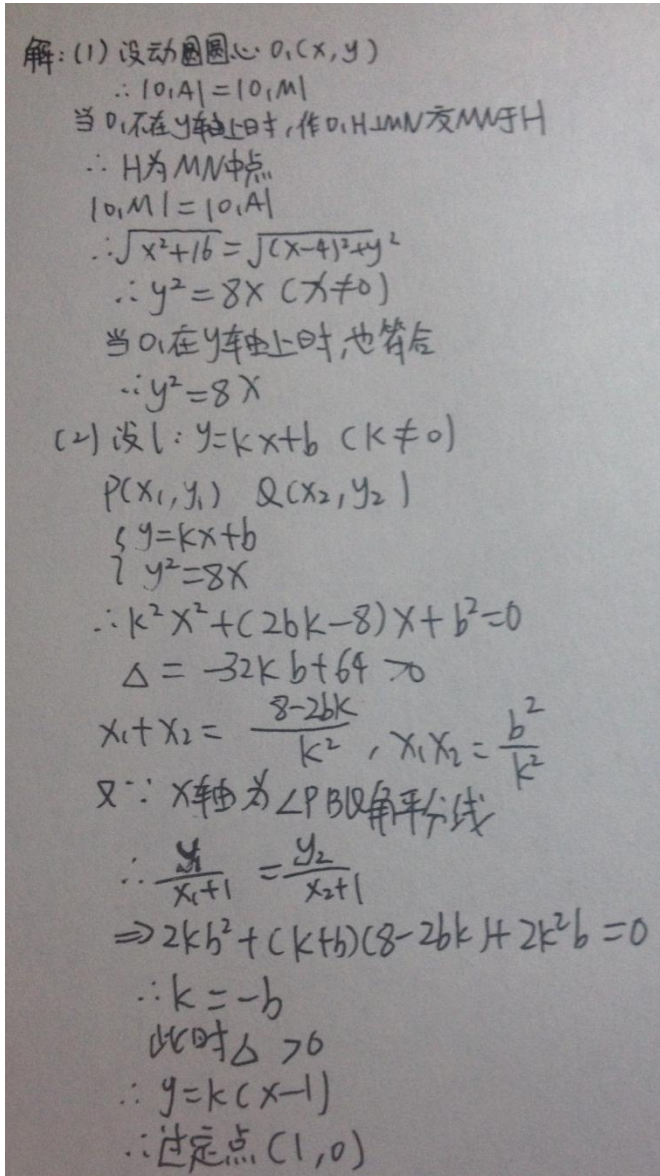 解:(1) 设动圆圆心 O₁(x, y)
∴ |O₁A| = |O₁M|
当 O₁不在y轴上时, 作O₁H⊥MN交MN于H
∴ H为MN中点
|O₁M| = |O₁A|
∴ √(x²+16) = √((x-4)²+y²)
∴ y² = 8x (x≠0)
当 O₁在y轴上时, 也符合
∴ y² = 8x
(2) 设 l: y=kx+b (k≠0)
P(x₁, y₁) Q(x₂, y₂)
{ y=kx+b
y²=8x
∴ k²x²+(2bk-8)x+b²=0
Δ = -32kb+64 >0
x₁+x₂ = (8-2bk)/k², x₁x₂ = b²/k²
又∵ x轴为∠PBQ角平分线
∴ y₁/(x₁+1) = y₂/(x₂+1)
⇒ 2kb²+(k+b)(8-2bk)+2k²b=0
∴ k = -b
此时Δ >0
∴ y=k(x-1)
∴ 过定点(1,0)